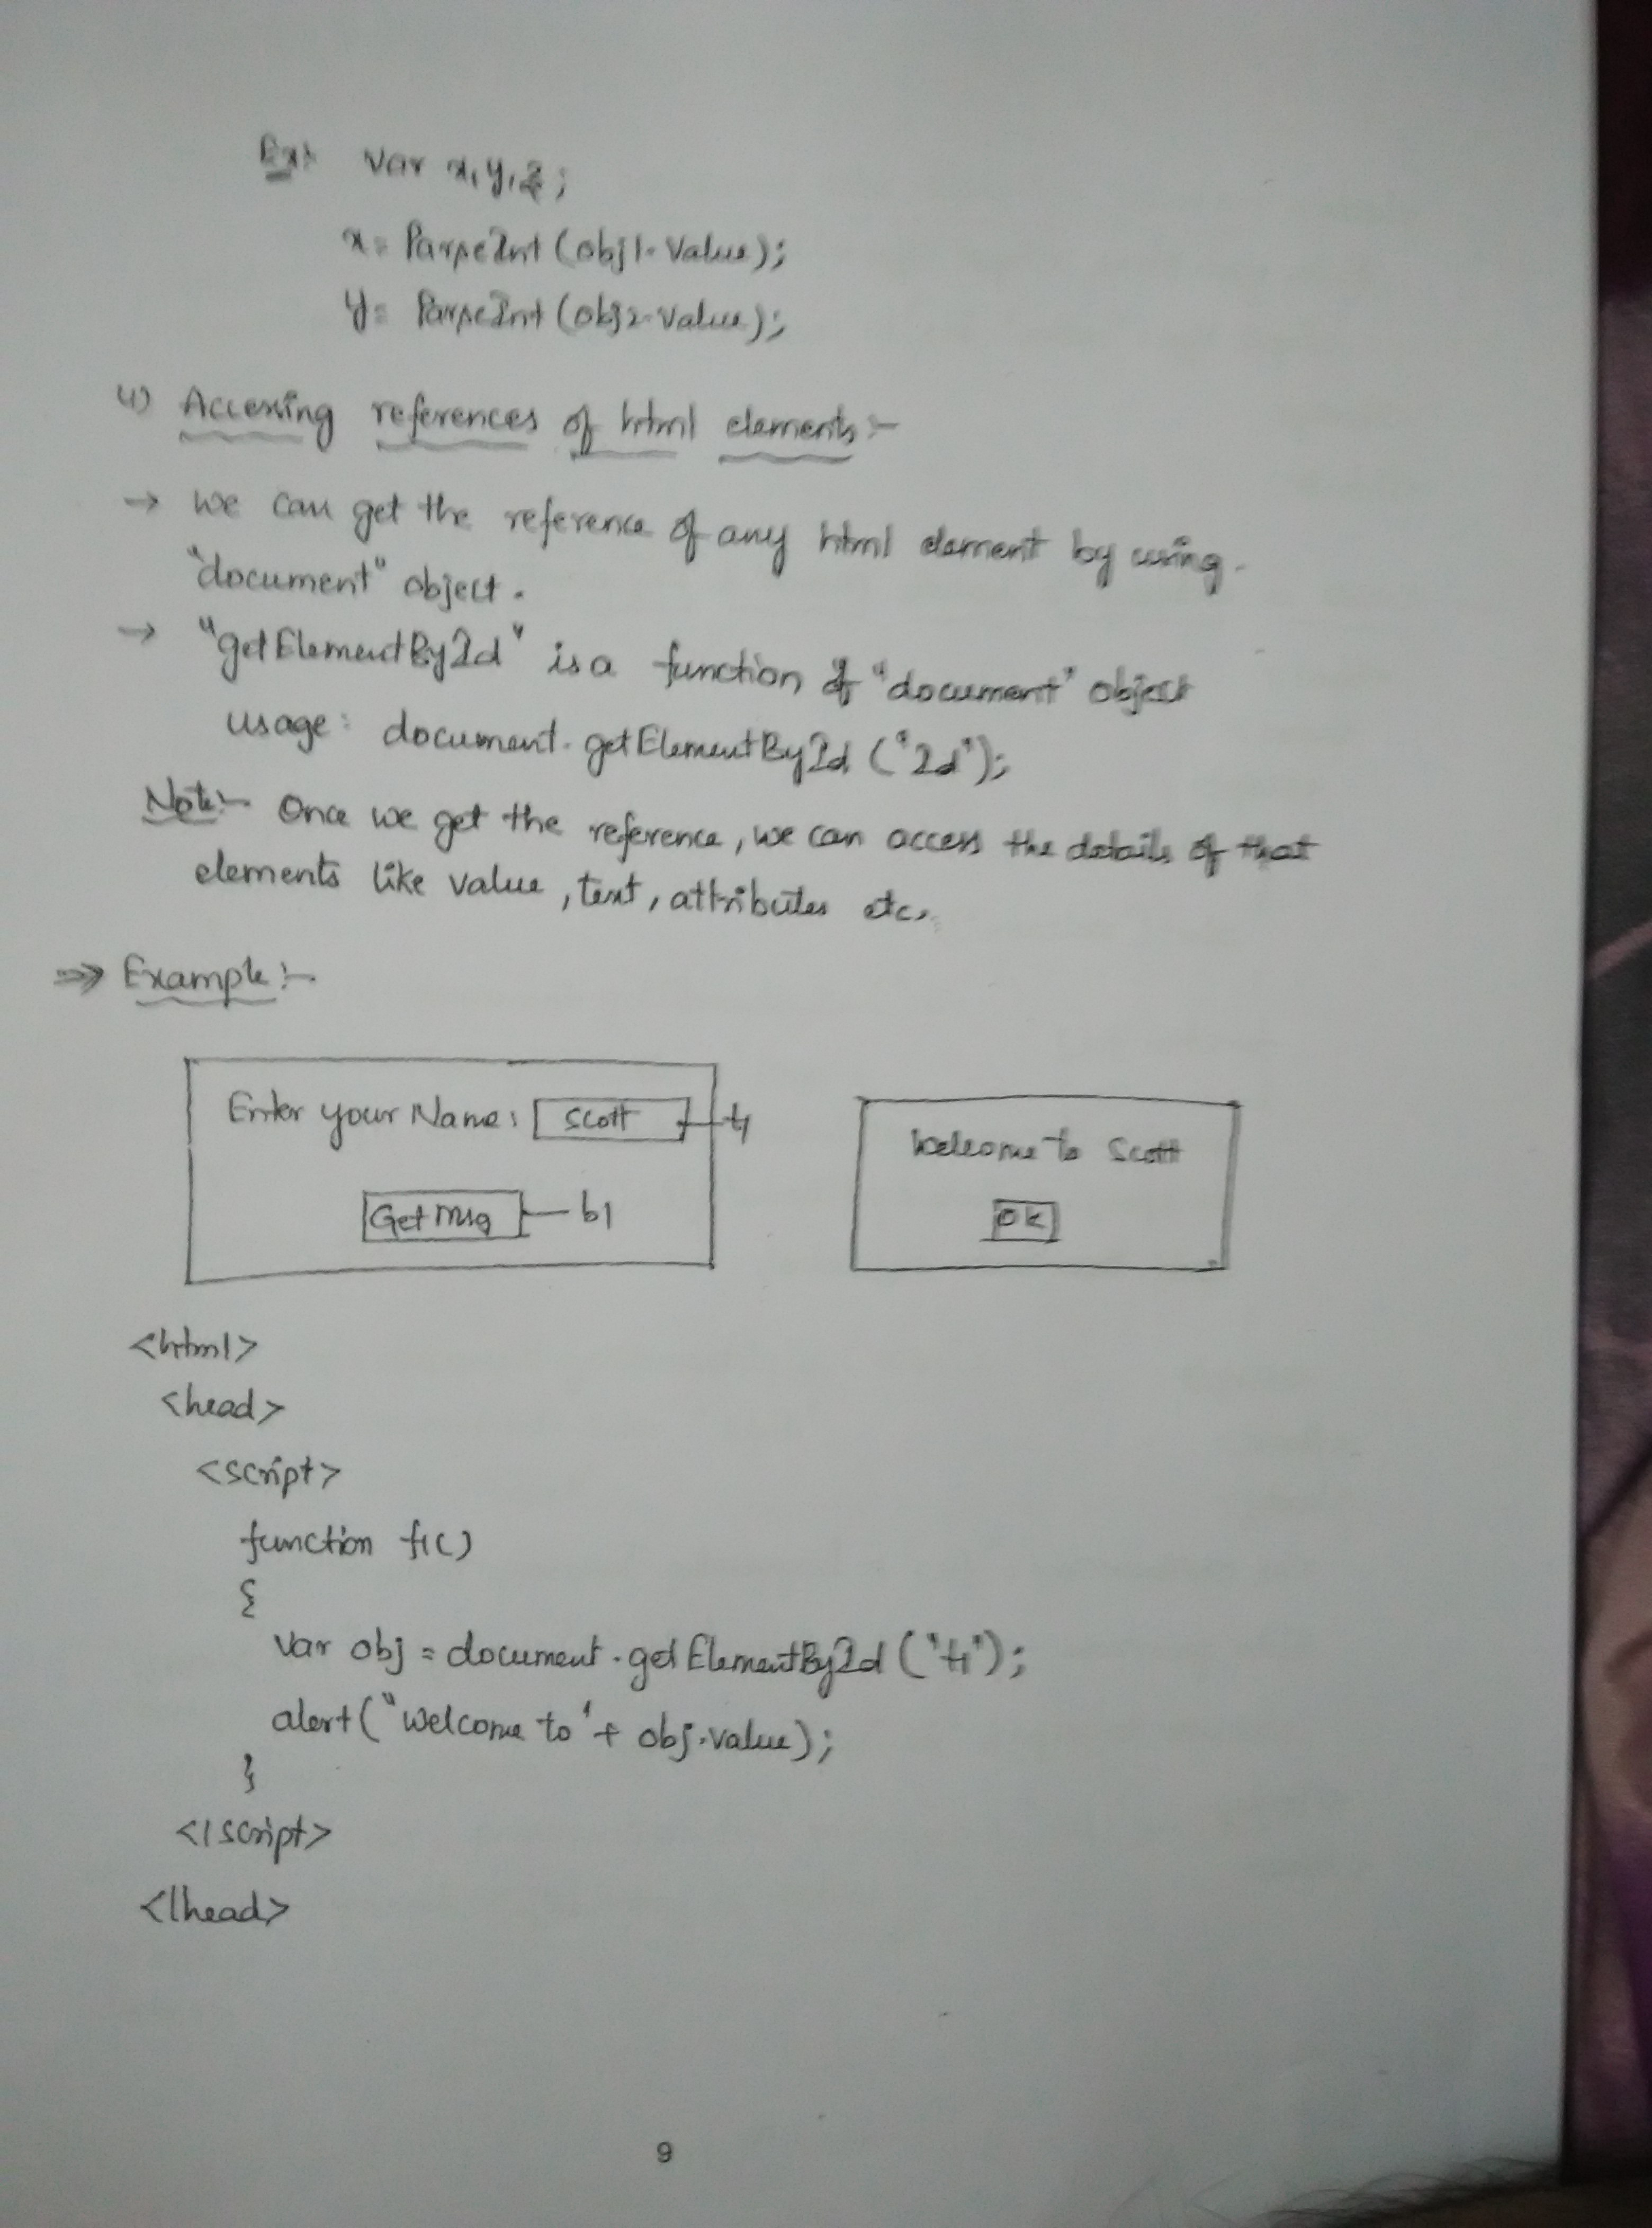 Ex:- Var x, y, z;
x = ParseInt (obj1.Value);
y = ParseInt (obj2.Value);
4) Accessing references of html elements :-
→ we can get the reference of any html element by using
"document" object.
→ "getElementById" is a function of "document" object
usage: document.getElementById ("Id");
Note:- Once we get the reference, we can access the details of that
elements like value, text, attributes etc.
⇒ Example :-
Enter your Name: Scott t1
Get Msg b1
Welcome to Scott
OK
<html>
<head>
<script>
function f1()
{
Var obj = document.getElementById ("t1");
alert("Welcome to " + obj.value);
}
</script>
</head>
9